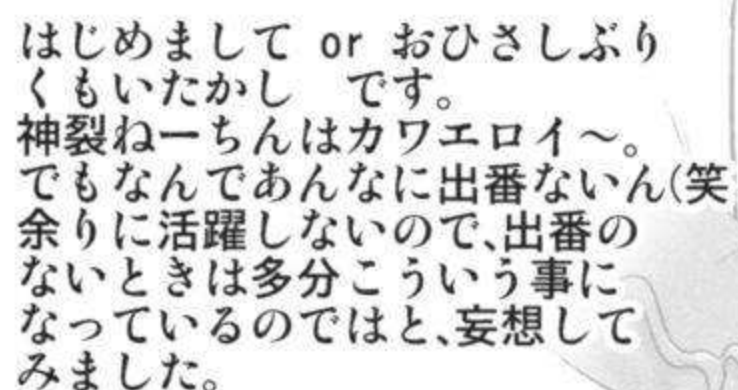 はじめまして or おひさしぶり
くもいたかし　です。
神裂ねーちんはカワエロイ～。
でもなんであんなに出番ないん(笑
余りに活躍しないので､出番の
ないときは多分こういう事に
なっているのではと､妄想して
みました。